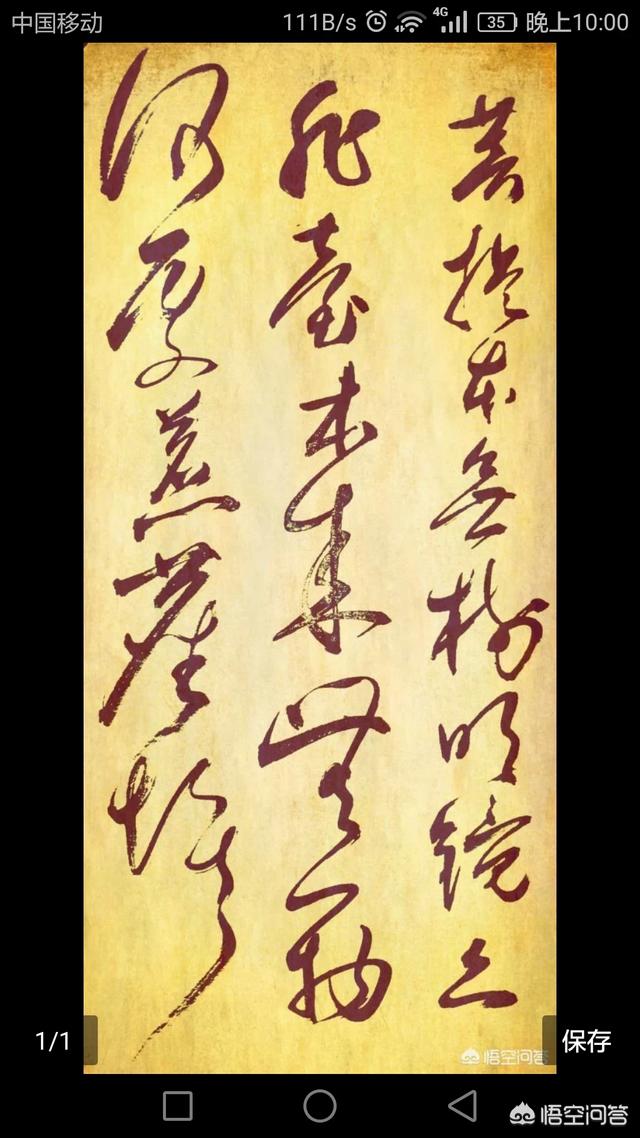 中国移动 111B/s 4G 35 晚上10:00
菩提本無樹明鏡亦
非臺本来無一物
何處惹塵埃
悟空问答
1/1 保存
悟空问答